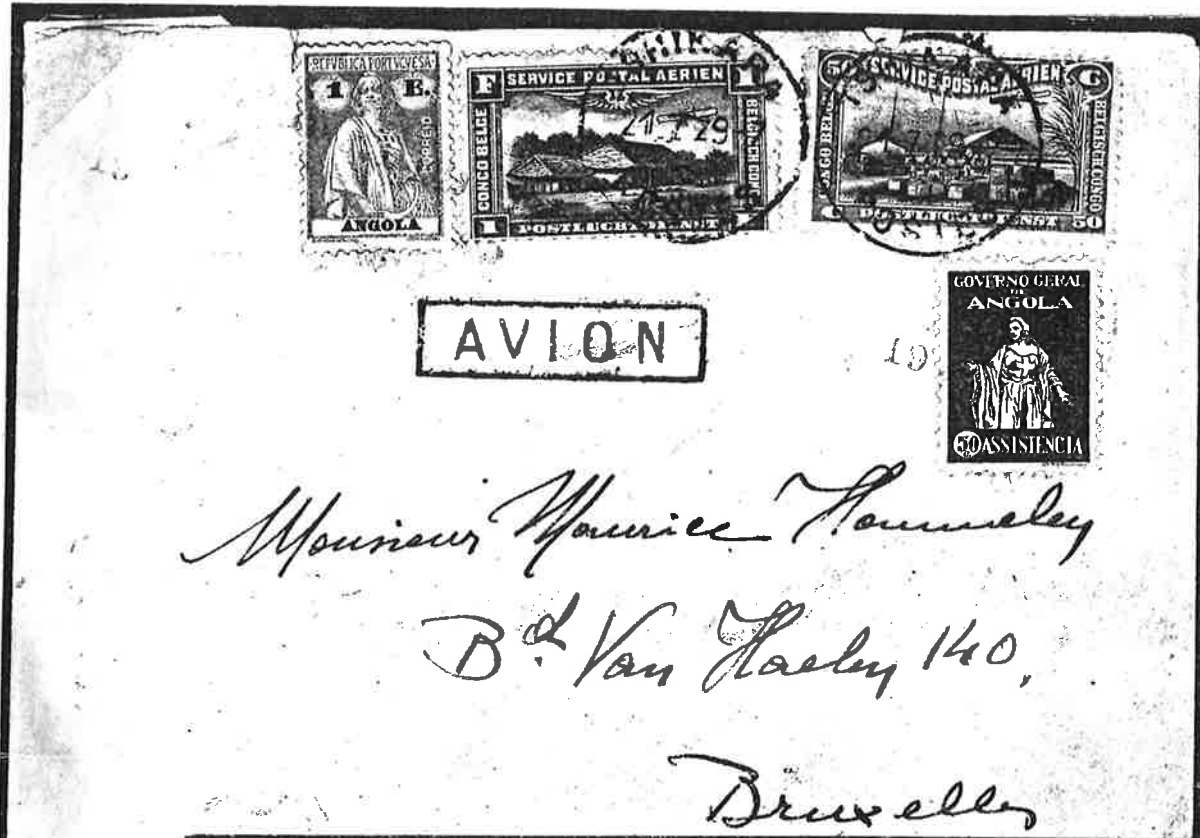 REPVBLICA PORTVGVESA
1 E.
CORREIO
ANGOLA
F SERVICE POSTAL AERIEN 1
CONGO BELGE
BELGISCH CONGO
1 POSTLUCHTDIENST 1
50 SERVICE POSTAL AERIEN C
CONGO BELGE
BELGISCH CONGO
C POSTLUCHTDIENST 50
29
AVION
19
GOVERNO GERAL
DE
ANGOLA
50 ASSISTENCIA
Monsieur Maurice
Bd. Van Haelen 140,
Bruxelles